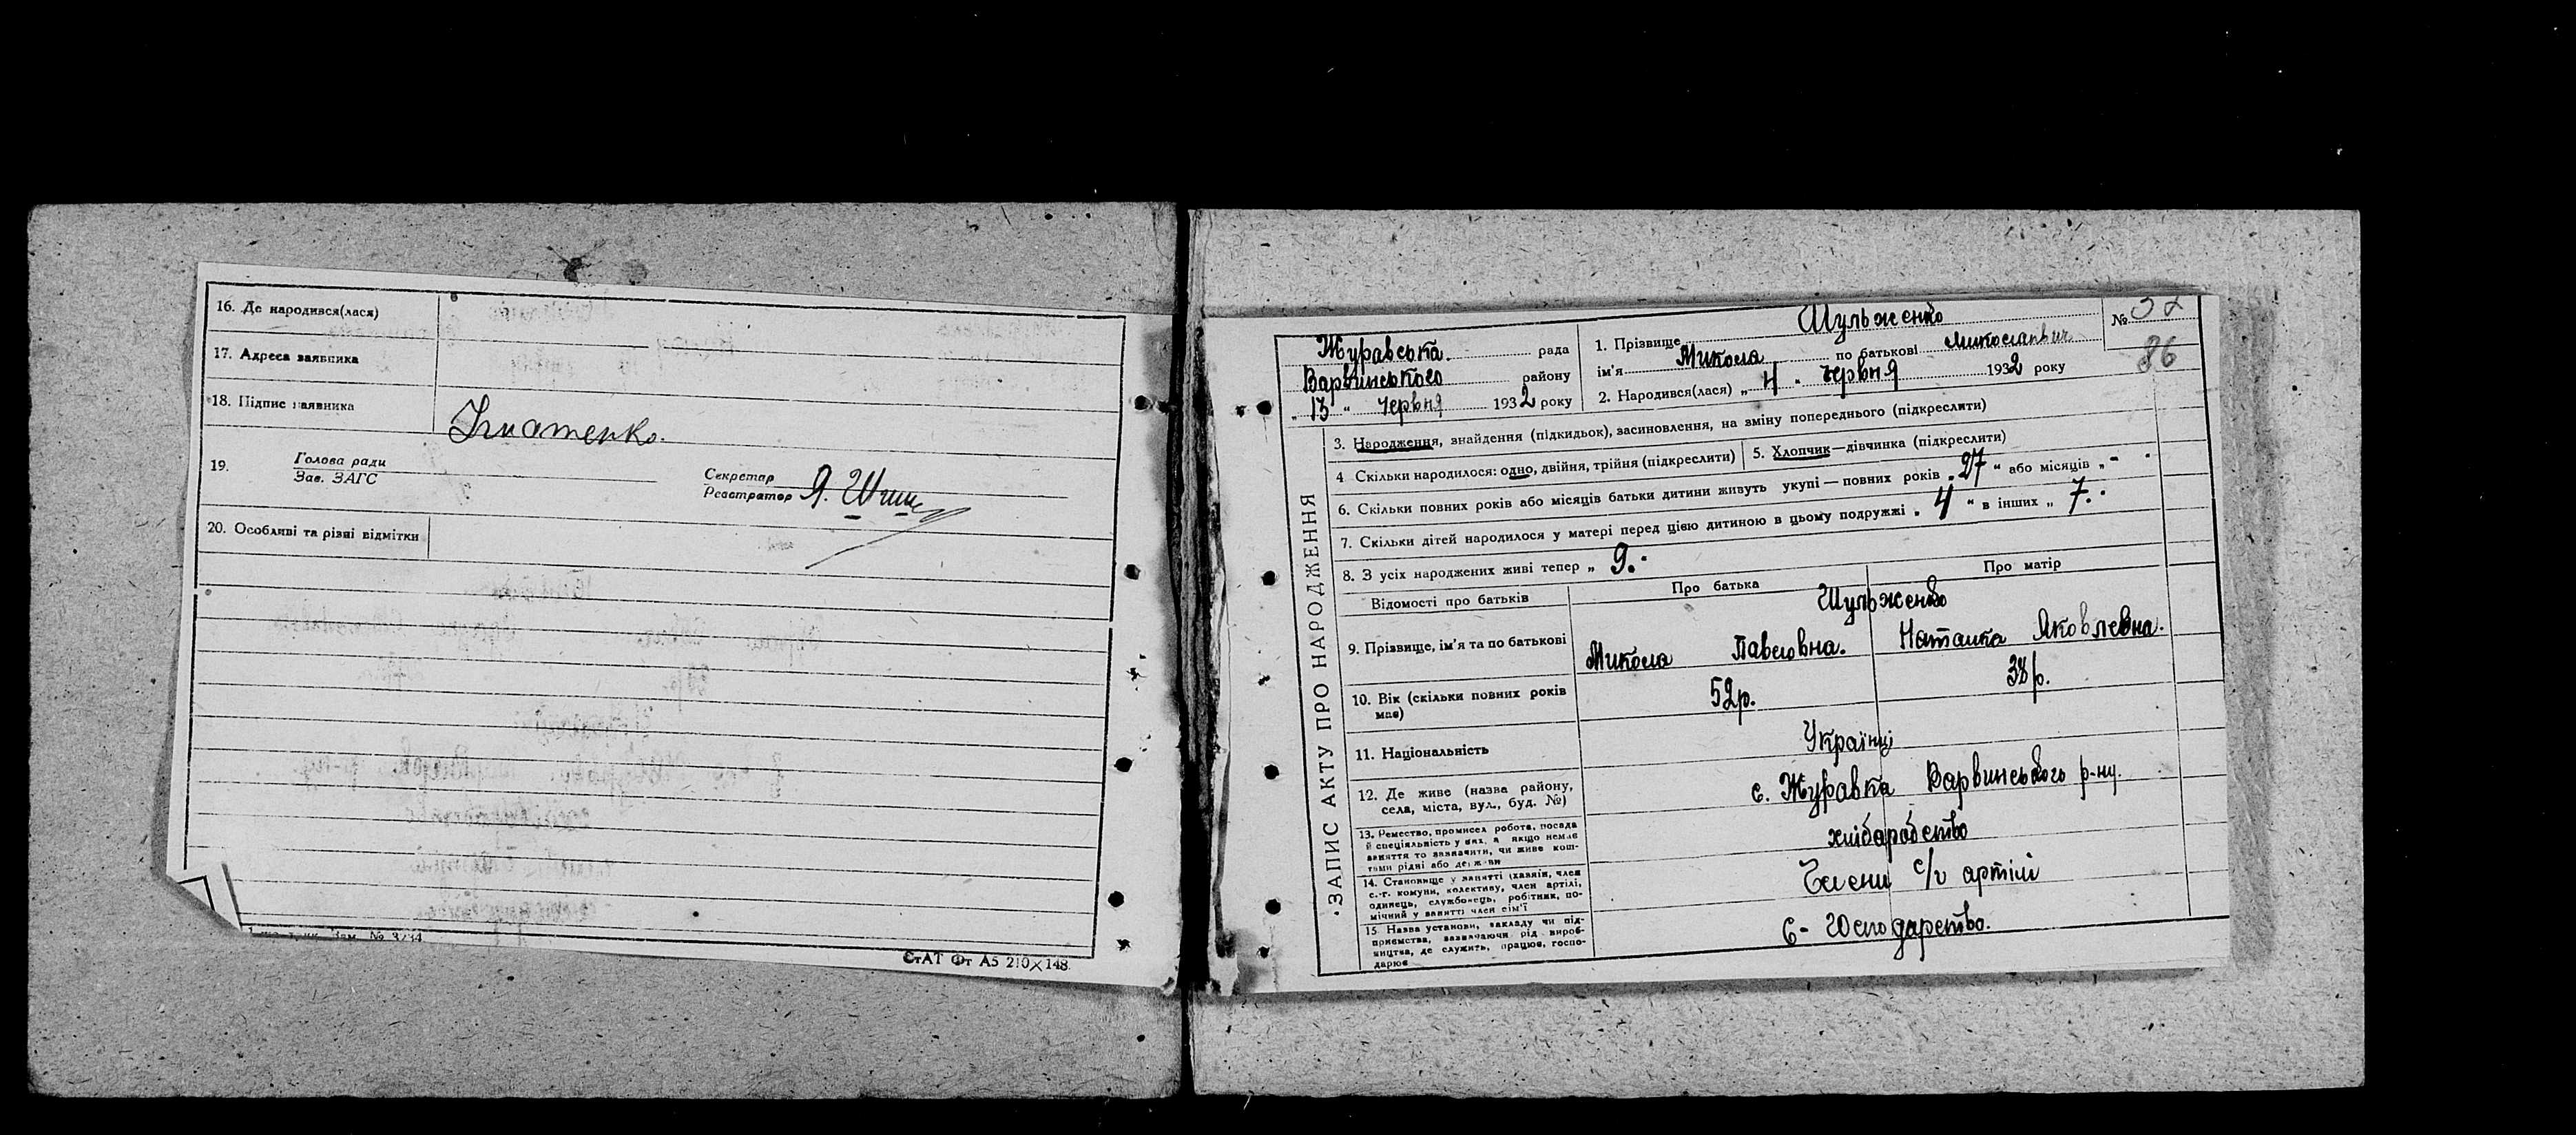 16. Де народився(лася)
17. Адреса заявника
18. Підпис заявника
Ігнатенко.
19. Голова ради
Зав. ЗАГС
Секретар
Реєстратор
20. Особливі та різні відмітки
Зам. № 3234
СтАТ Фт А5 210×148.
ЗАПИС АКТУ ПРО НАРОДЖЕННЯ
Журавська рада
Варвинського району
„ 13 “ червня 1932 року
1. Прізвище Шульженко
ім'я Микола по батькові Миколаївич
2. Народився(лася) „ 4 “ червня 1932 року
№ 32
86
3. Народження, знайдення (підкидьок), засиновлення, на зміну попереднього (підкреслити)
4 Скільки народилося: одно, двійня, трійня (підкреслити)
5. Хлопчик—дівчинка (підкреслити)
6. Скільки повних років або місяців батьки дитини живуть укупі — повних років „ 27 “ або місяців „ - “
7. Скільки дітей народилося у матері перед цією дитиною в цьому подружжі „ 4 “ в інших „ 7. “
8. З усіх народжених живі тепер „ 9. “
Відомості про батьків
Про батька
Про матір
9. Прізвище, ім'я та по батькові
Шульженко
Микола Павловна.
Наталка Яковлевна.
10. Вік (скільки повних років має)
52р.
38р.
11. Національність
Українці
12. Де живе (назва району,
села, міста, вул., буд. №)
с. Журавка Варвинського р-ну.
13. Ремество, промисел робота, посада
й спеціяльність у них, а якщо немає
заняття то зазначити, чи живе кош-
тами рідні або держави
хліборобство
14. Становище у занятті (хазяїн, член
с.-г. комуни, колективу, член артілі,
одинець, службовець, робітник, по-
мічний у занятті член сім'ї
Члени с/г артілі
15 Назва установи, закладу чи під-
приємства, зазначаючи рід вироб-
ництва, де служить, працює, госпо-
дарює
С- Господарство.